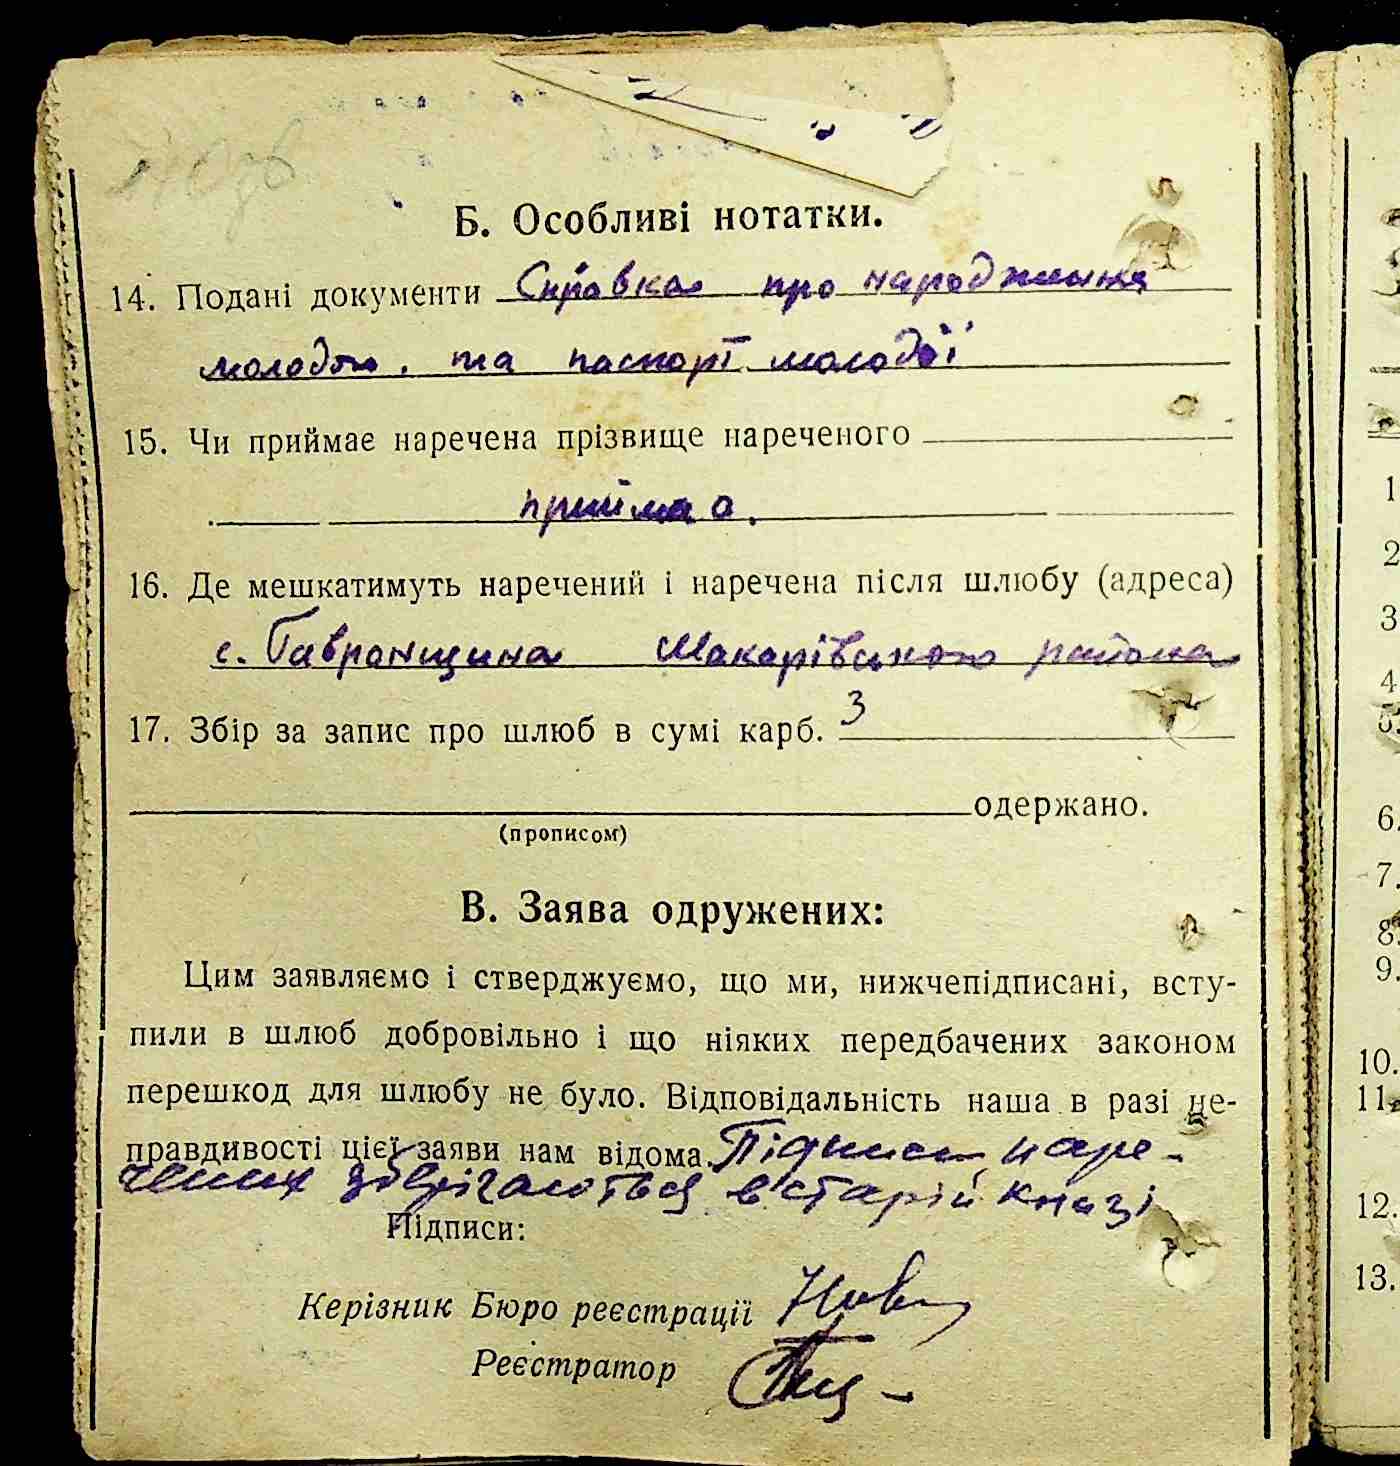 Б. Особливі нотатки.
14. Подані документи Справка про народження
молодого. та паспорт молодої
15. Чи приймає наречена прізвище нареченого
приймає.
16. Де мешкатимуть наречений і наречена після шлюбу (адреса)
с. Гавронщина Макарівського района
17. Збір за запис про шлюб в сумі карб. 3
одержано.
(прописом)
В. Заява одружених:
Цим заявляємо і стверджуємо, що ми, нижчепідписані, всту-
пили в шлюб добровільно і що ніяких передбачених законом
перешкод для шлюбу не було. Відповідальність наша в разі не-
правдивості цієї заяви нам відома. Підписи наре-
чених зберігаються в старій книзі
Підписи:
Керівник Бюро реєстрації
Реєстратор
1
2
3
4
5.
6.
7.
8.
9.
10.
11.
12.
13.